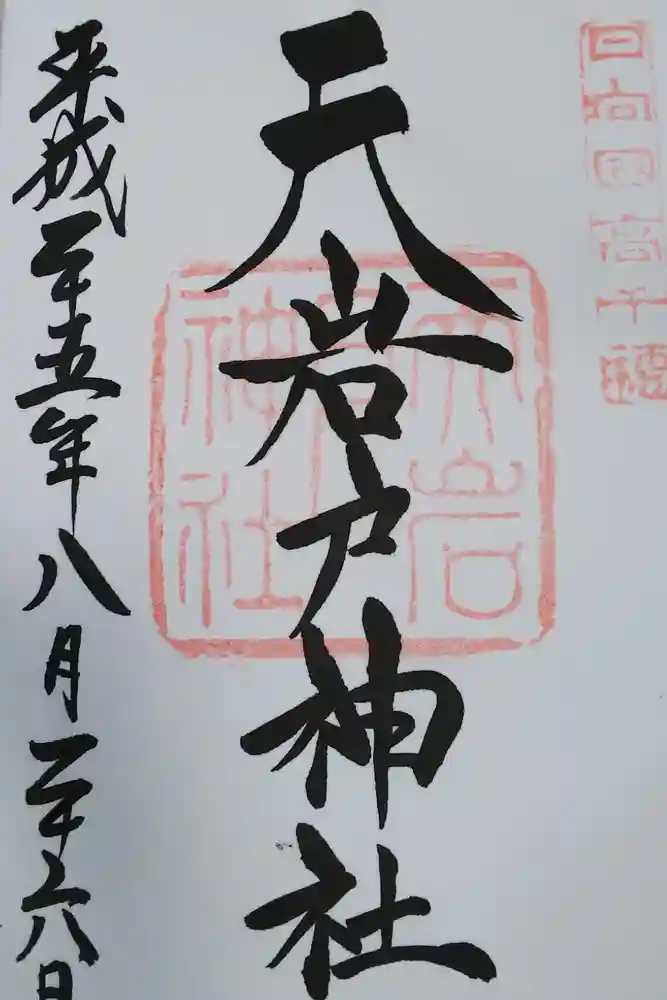 日向国高千穂
天岩戸神社
天岩戸神社
平成二十五年八月二十六日